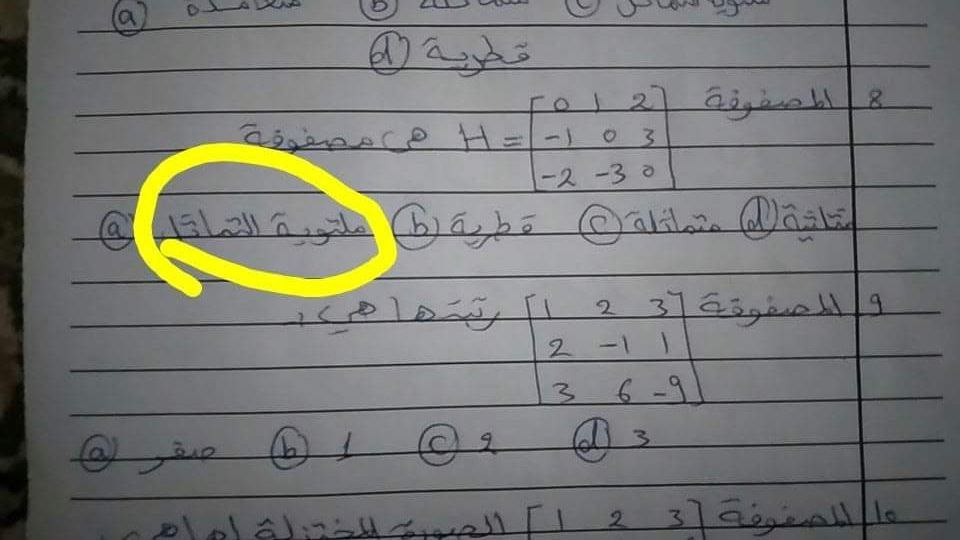 d قطرية
8 المصفوفة [0 1 2
-1 0 3
-2 -3 0] = H هي مصفوفة
a ملتوية التماثل b قطرية c متماثلة d
9 المصفوفة [1 2 3
2 -1 1
3 6 -9] رتبتها هي
a صفر b 1 c 2 d 3
10 المصفوفة [1 2 3] الصورة المختزلة لها هي